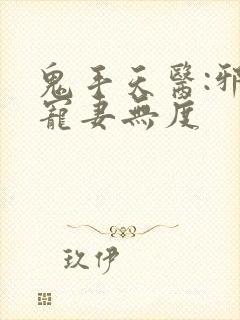 鬼手天醫:邪
寵妻無度
玖伊